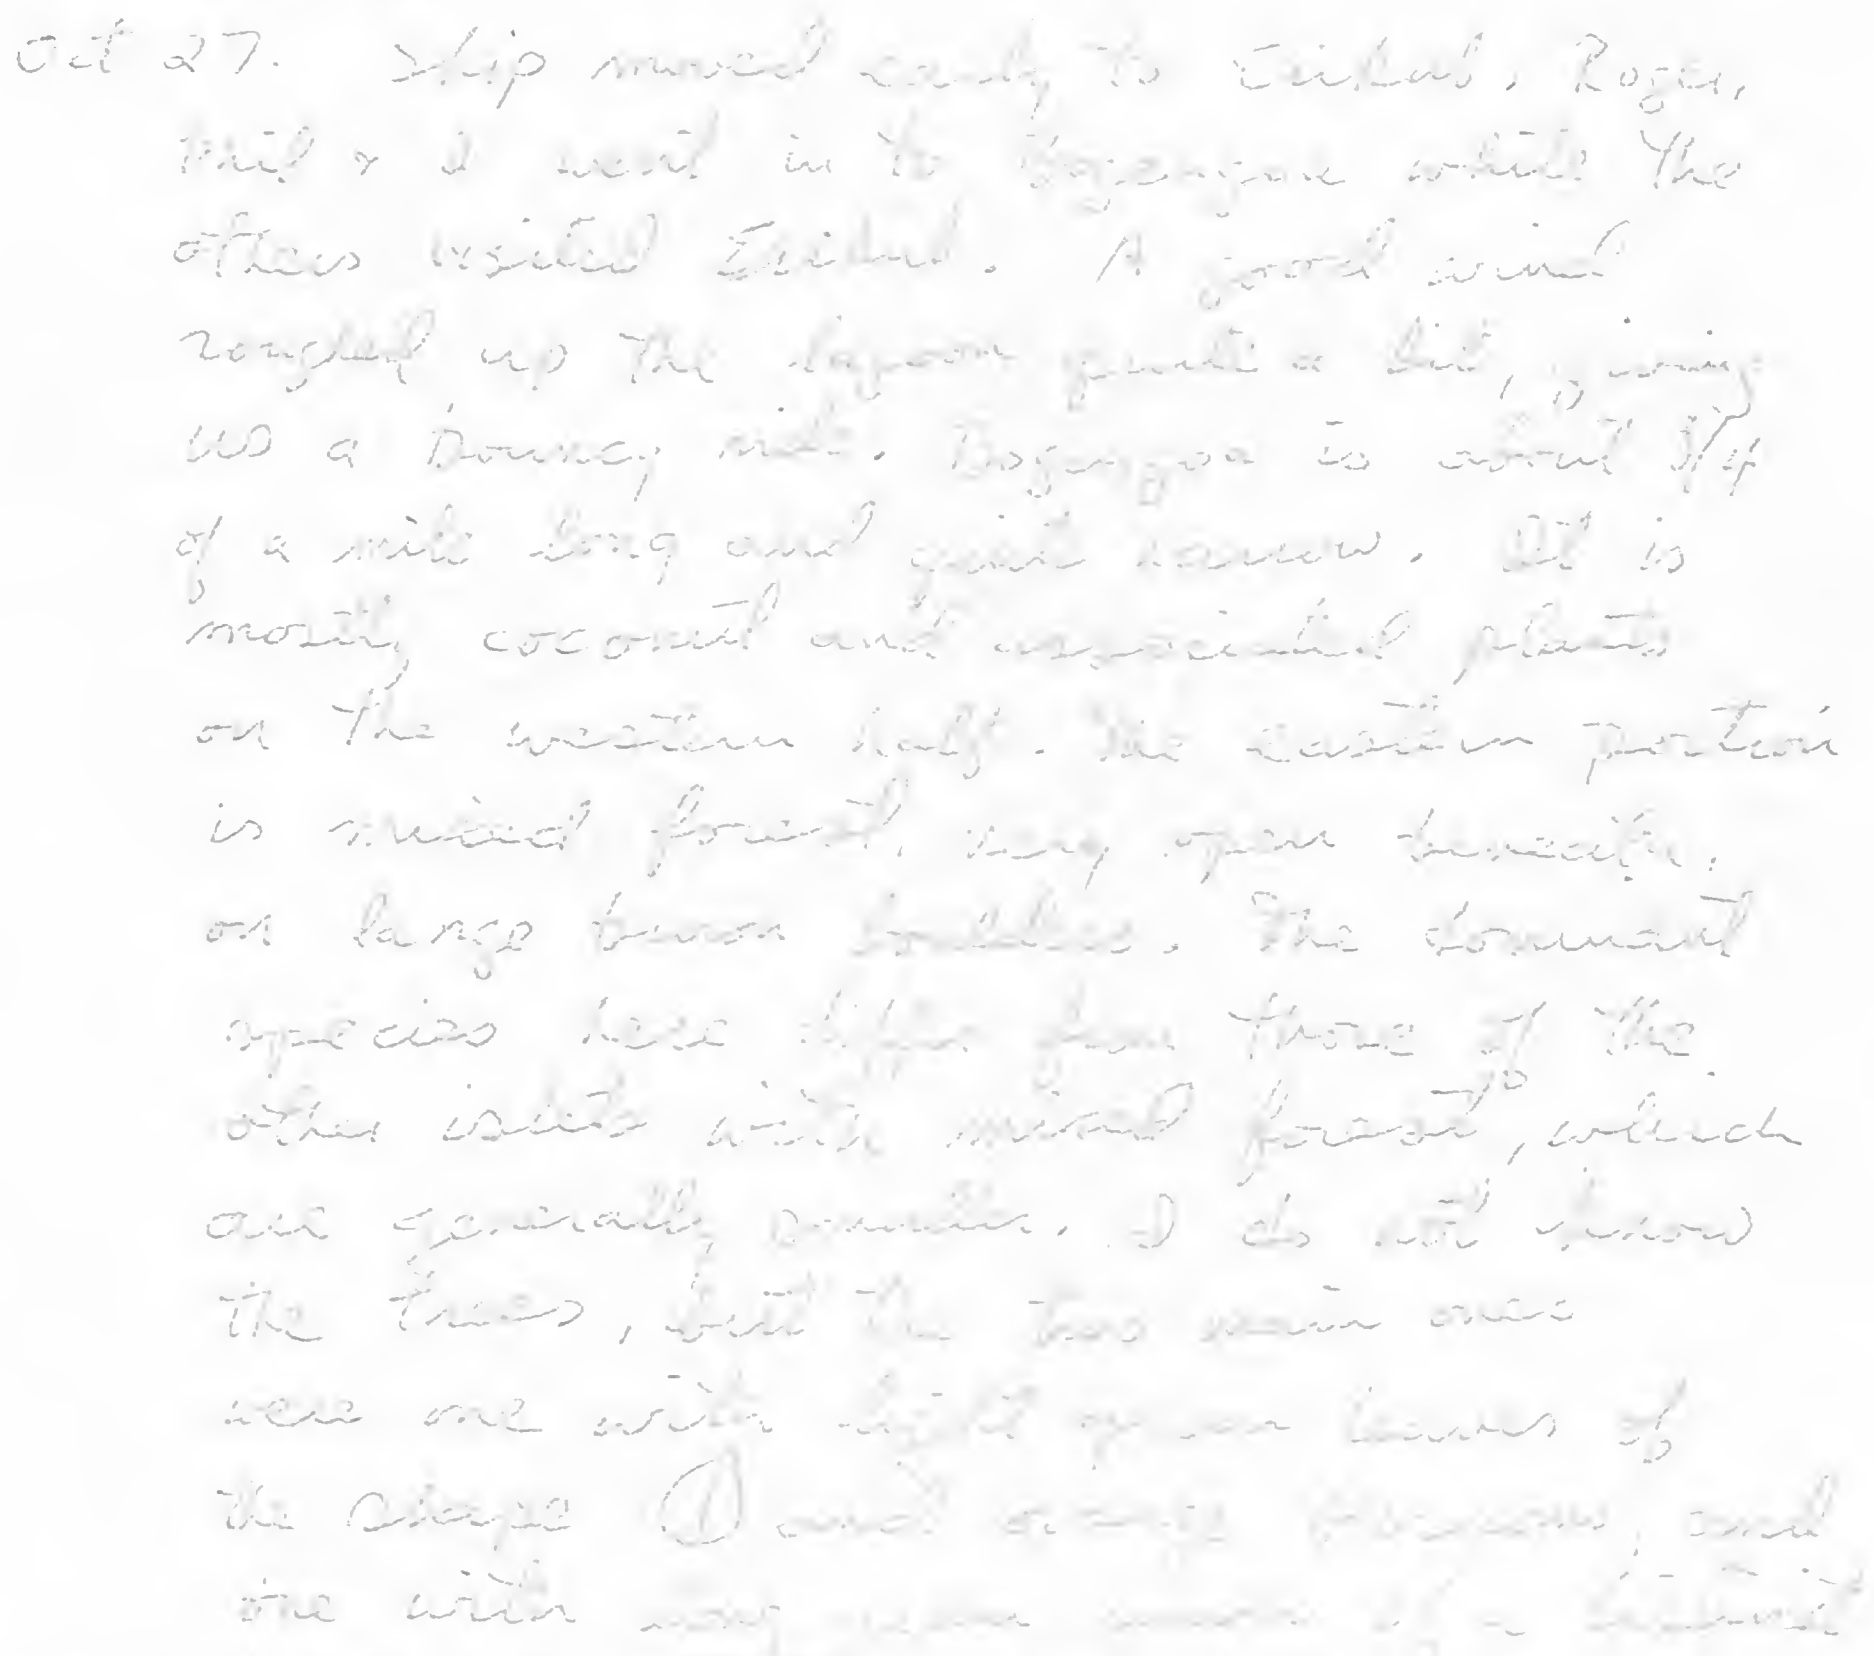 Oct 27. Ship moved early to Eniwetak. Roger,
& I went in to while the
others visited. A good wind
roughed up the lagoon quite a bit, giving
us a bouncy ride. is about 3/4
of a mile long and quite narrow. It is
mostly coconut and associated plants
on the western half. The eastern portion
is mixed forest, very open beneath,
on large brown boulders. The dominant
species here differ from those of the
other islets with mixed forest, which
are generally Pisonia. I do not know
the trees, but the two main ones
were one with light green leaves of
the shape and orange flowers, and
one with very of a